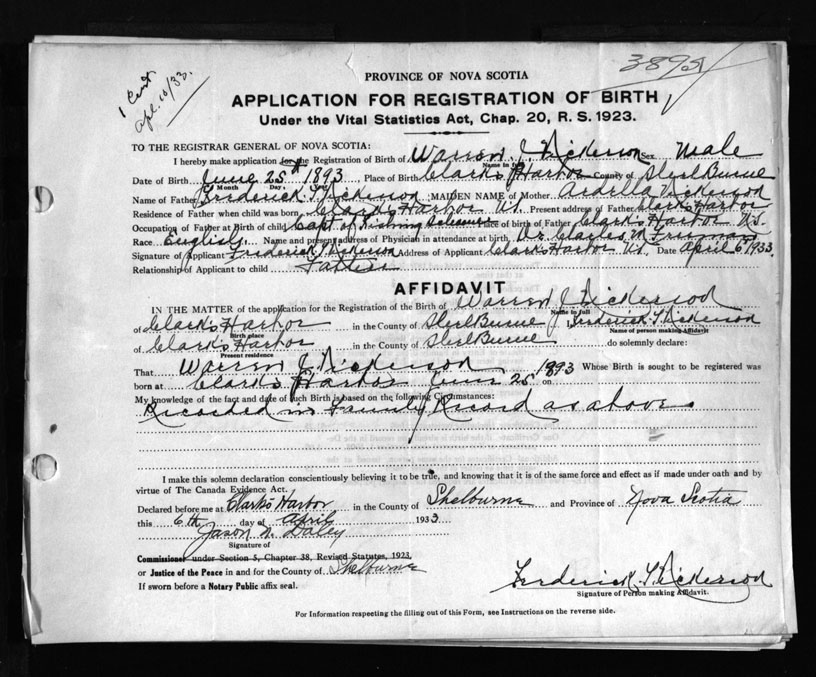 1 Cert
Apl. 10/33.
PROVINCE OF NOVA SCOTIA
APPLICATION FOR REGISTRATION OF BIRTH
Under the Vital Statistics Act, Chap. 20, R. S. 1923.
TO THE REGISTRAR GENERAL OF NOVA SCOTIA:
I hereby make application for the Registration of Birth of Warren J. Nickerson Sex Male
Name in full
Date of Birth June 25th 1893 Place of Birth Clarks Harbor County of ShelBurne
Month Day, Year
Name of Father Frederick T. Nickerson MAIDEN NAME of Mother Ardella Nickerson
Residence of Father when child was born Clarks Harbor N.S. Present address of Father Clarks Harbor
Occupation of Father at Birth of child Capt of Fishing Place of birth of Father Clarks Harbor N.S.
Race English Name and present address of Physician in attendance at birth, Dr Charles M Freeman
Signature of Applicant Frederick T Nickerson Address of Applicant Clarks Harbor N.S. Date April 6 1933.
Relationship of Applicant to child Father
AFFIDAVIT
IN THE MATTER of the application for the Registration of the Birth of Warren J. Nickerson
Name in full
of Clarks Harbor in the County of ShelBurne I, Frederick T Nickerson
Birth place Name of person making Affidavit
of Clarks Harbor in the County of ShelBurne do solemnly declare:
Present residence
That Warren J. Nickerson 1893 Whose Birth is sought to be registered was
born at Clarks Harbor June 25 on
My knowledge of the fact and date of such Birth is based on the following Circumstances:
Recorded in Family Record as above
I make this solemn declaration conscientiously believing it to be true, and knowing that it is of the same force and effect as if made under oath and by
virtue of The Canada Evidence Act.
Declared before me at Clarks Harbor in the County of Shelburne and Province of Nova Scotia
this 6th day of April 1933
Jason D. Daley
Signature of
Commissioner under Section 5, Chapter 38, Revised Statutes, 1923,
or Justice of the Peace in and for the County of Shelburne
If sworn before a Notary Public affix seal.
Frederick T Nickerson
Signature of Person making Affidavit.
For Information respecting the filling out of this Form, see Instructions on the reverse side.